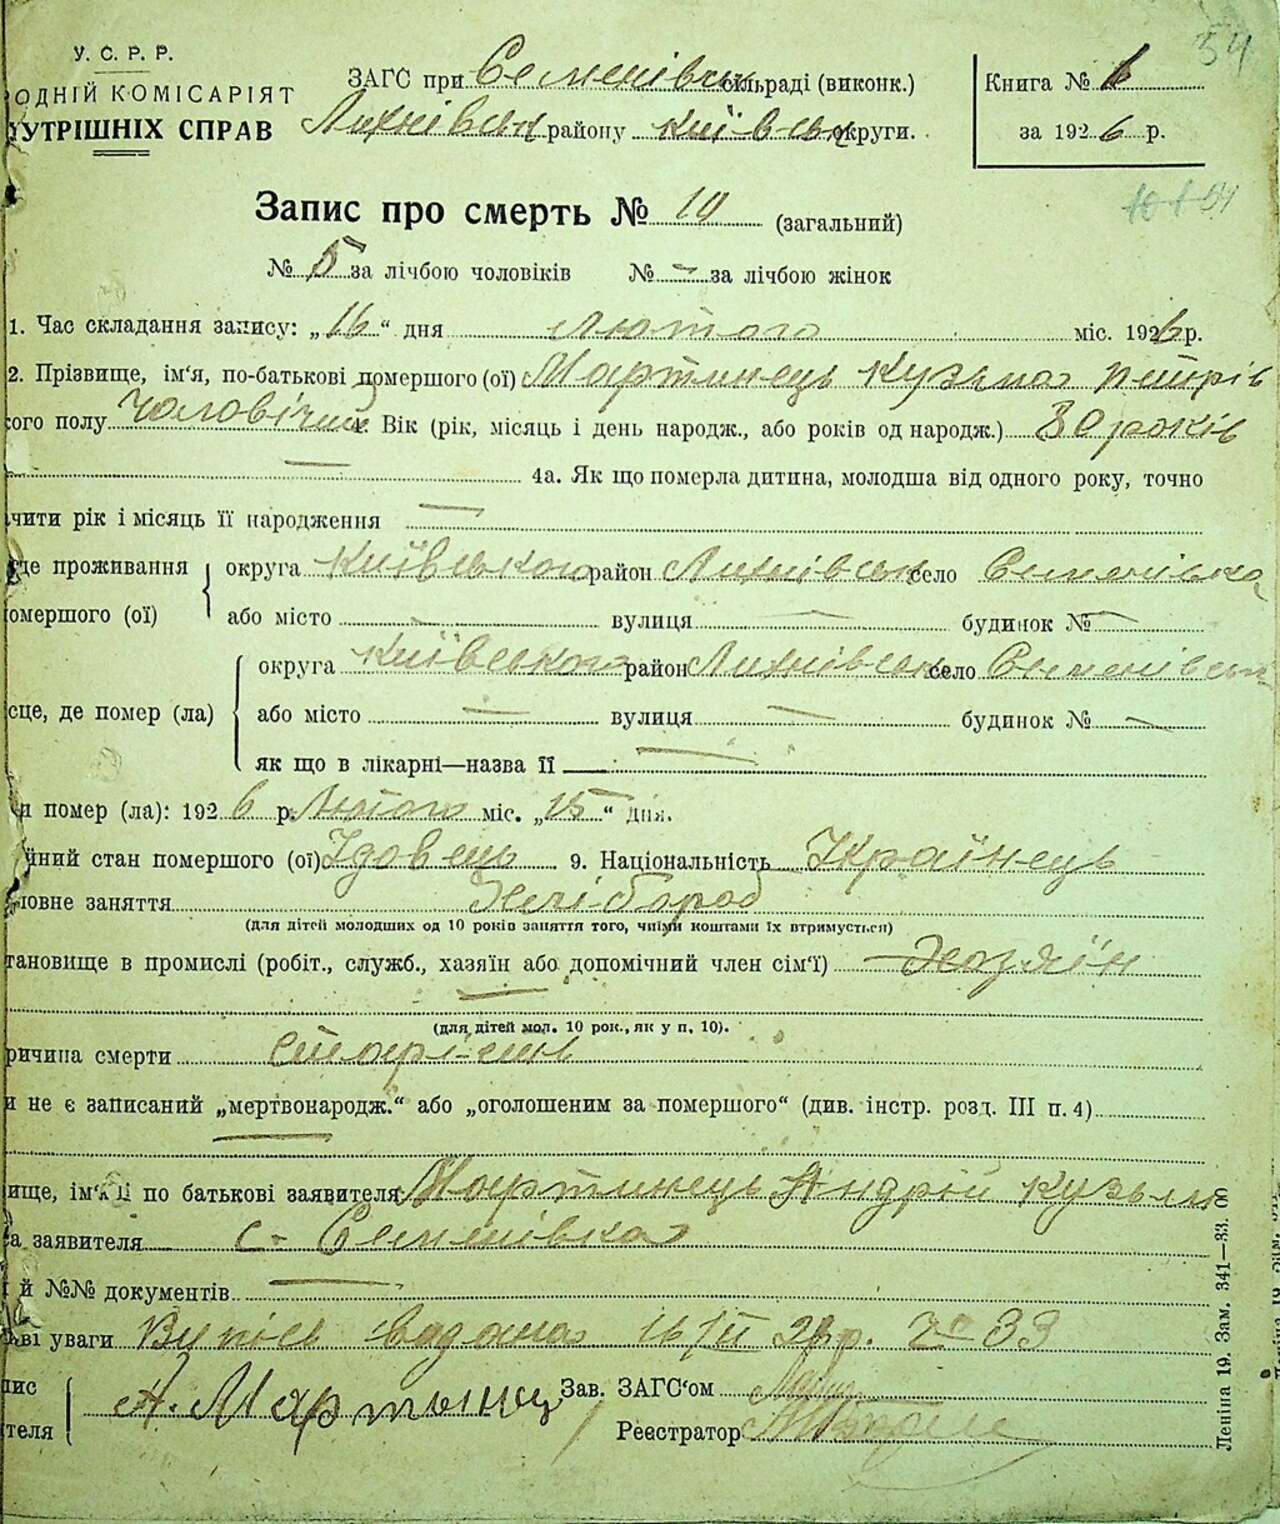 54
У. С. Р. Р.
ОДНІЙ КОМІСАРІЯТ
УТРІШНІХ СПРАВ
ЗАГС при Семенівськ сільраді (виконк.)
району Київськ округи.
Книга № 6
за 1926 р.
Запис про смерть № 10 (загальний)
№ 5 за лічбою чоловіків № — за лічбою жінок
1. Час складання запису: „16“ дня Лютого міс. 1926 р.
2. Прізвище, ім‘я, по-батькові помершого (ої) Мартинець Кузьма Петрів
ого полу Чоловічий 4. Вік (рік, місяць і день народж., або років од народж.) 80 років
— 4а. Як що померла дитина, молодша від одного року, точно
чити рік і місяць її народження —
де проживання округа Київського район село Семенівка
омершого (ої) або місто — вулиця — будинок № —
округа Київського район село Семенівськ
сце, де помер (ла) або місто — вулиця — будинок № —
як що в лікарні—назва її —
и помер (ла): 1926 р. Лютого міс. „15“ дня.
йний стан помершого (ої) Удовець 9. Національність Українець
ловне заняття Хлібороб
(для дітей молодших од 10 років заняття того, чиїми коштами їх втримується)
тановище в промислі (робіт., служб., хазяїн або допомічний член сім‘ї) Хазяїн
—
(для дітей мол. 10 рок., як у п. 10).
ричина смерти старість
и не є записаний „мертвонародж.“ або „оголошеним за помершого“ (див. інстр. розд. III п. 4)
—
вище, ім‘я й по батькові заявителя Мартинець Андрій Кузьм
а заявителя с. Семенівка
й №№ документів —
ві уваги Випись видана 16/II 26 р. № 33
пис А. Мартынец Зав. ЗАГС‘ом
теля Реєстратор
Леніна 19. Зам. 341—33. 00